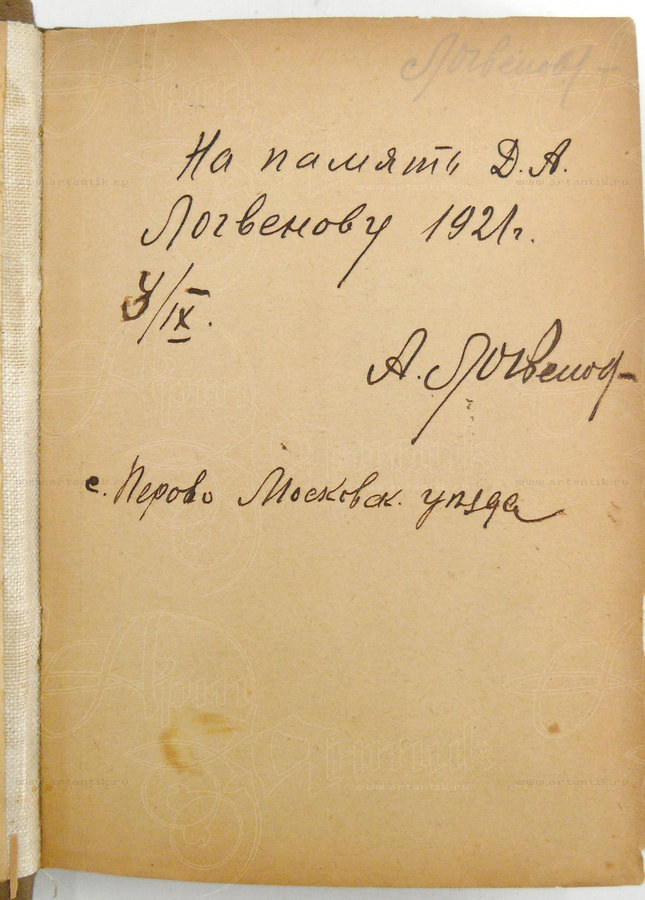 Логвенов
На память Д. А.
Логвенову 1921 г.
/IX.
А. Логвенов
с. Перово Московск. уезда
www.artantik.ru